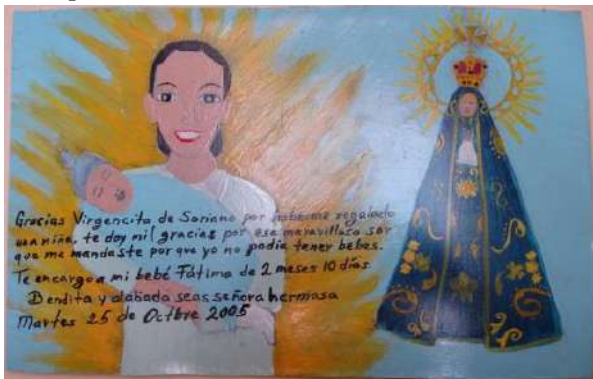 Gracias Virgencita de Soriano por haberme regalado
una niña, te doy mil gracias por ese maravilloso ser
que me mandaste por que yo no podia tener bebes.
Te encargo a mi bebé Fátima de 2 meses 10 días
Bendita y alabada seas señora hermosa
Martes 25 de Octbre 2005